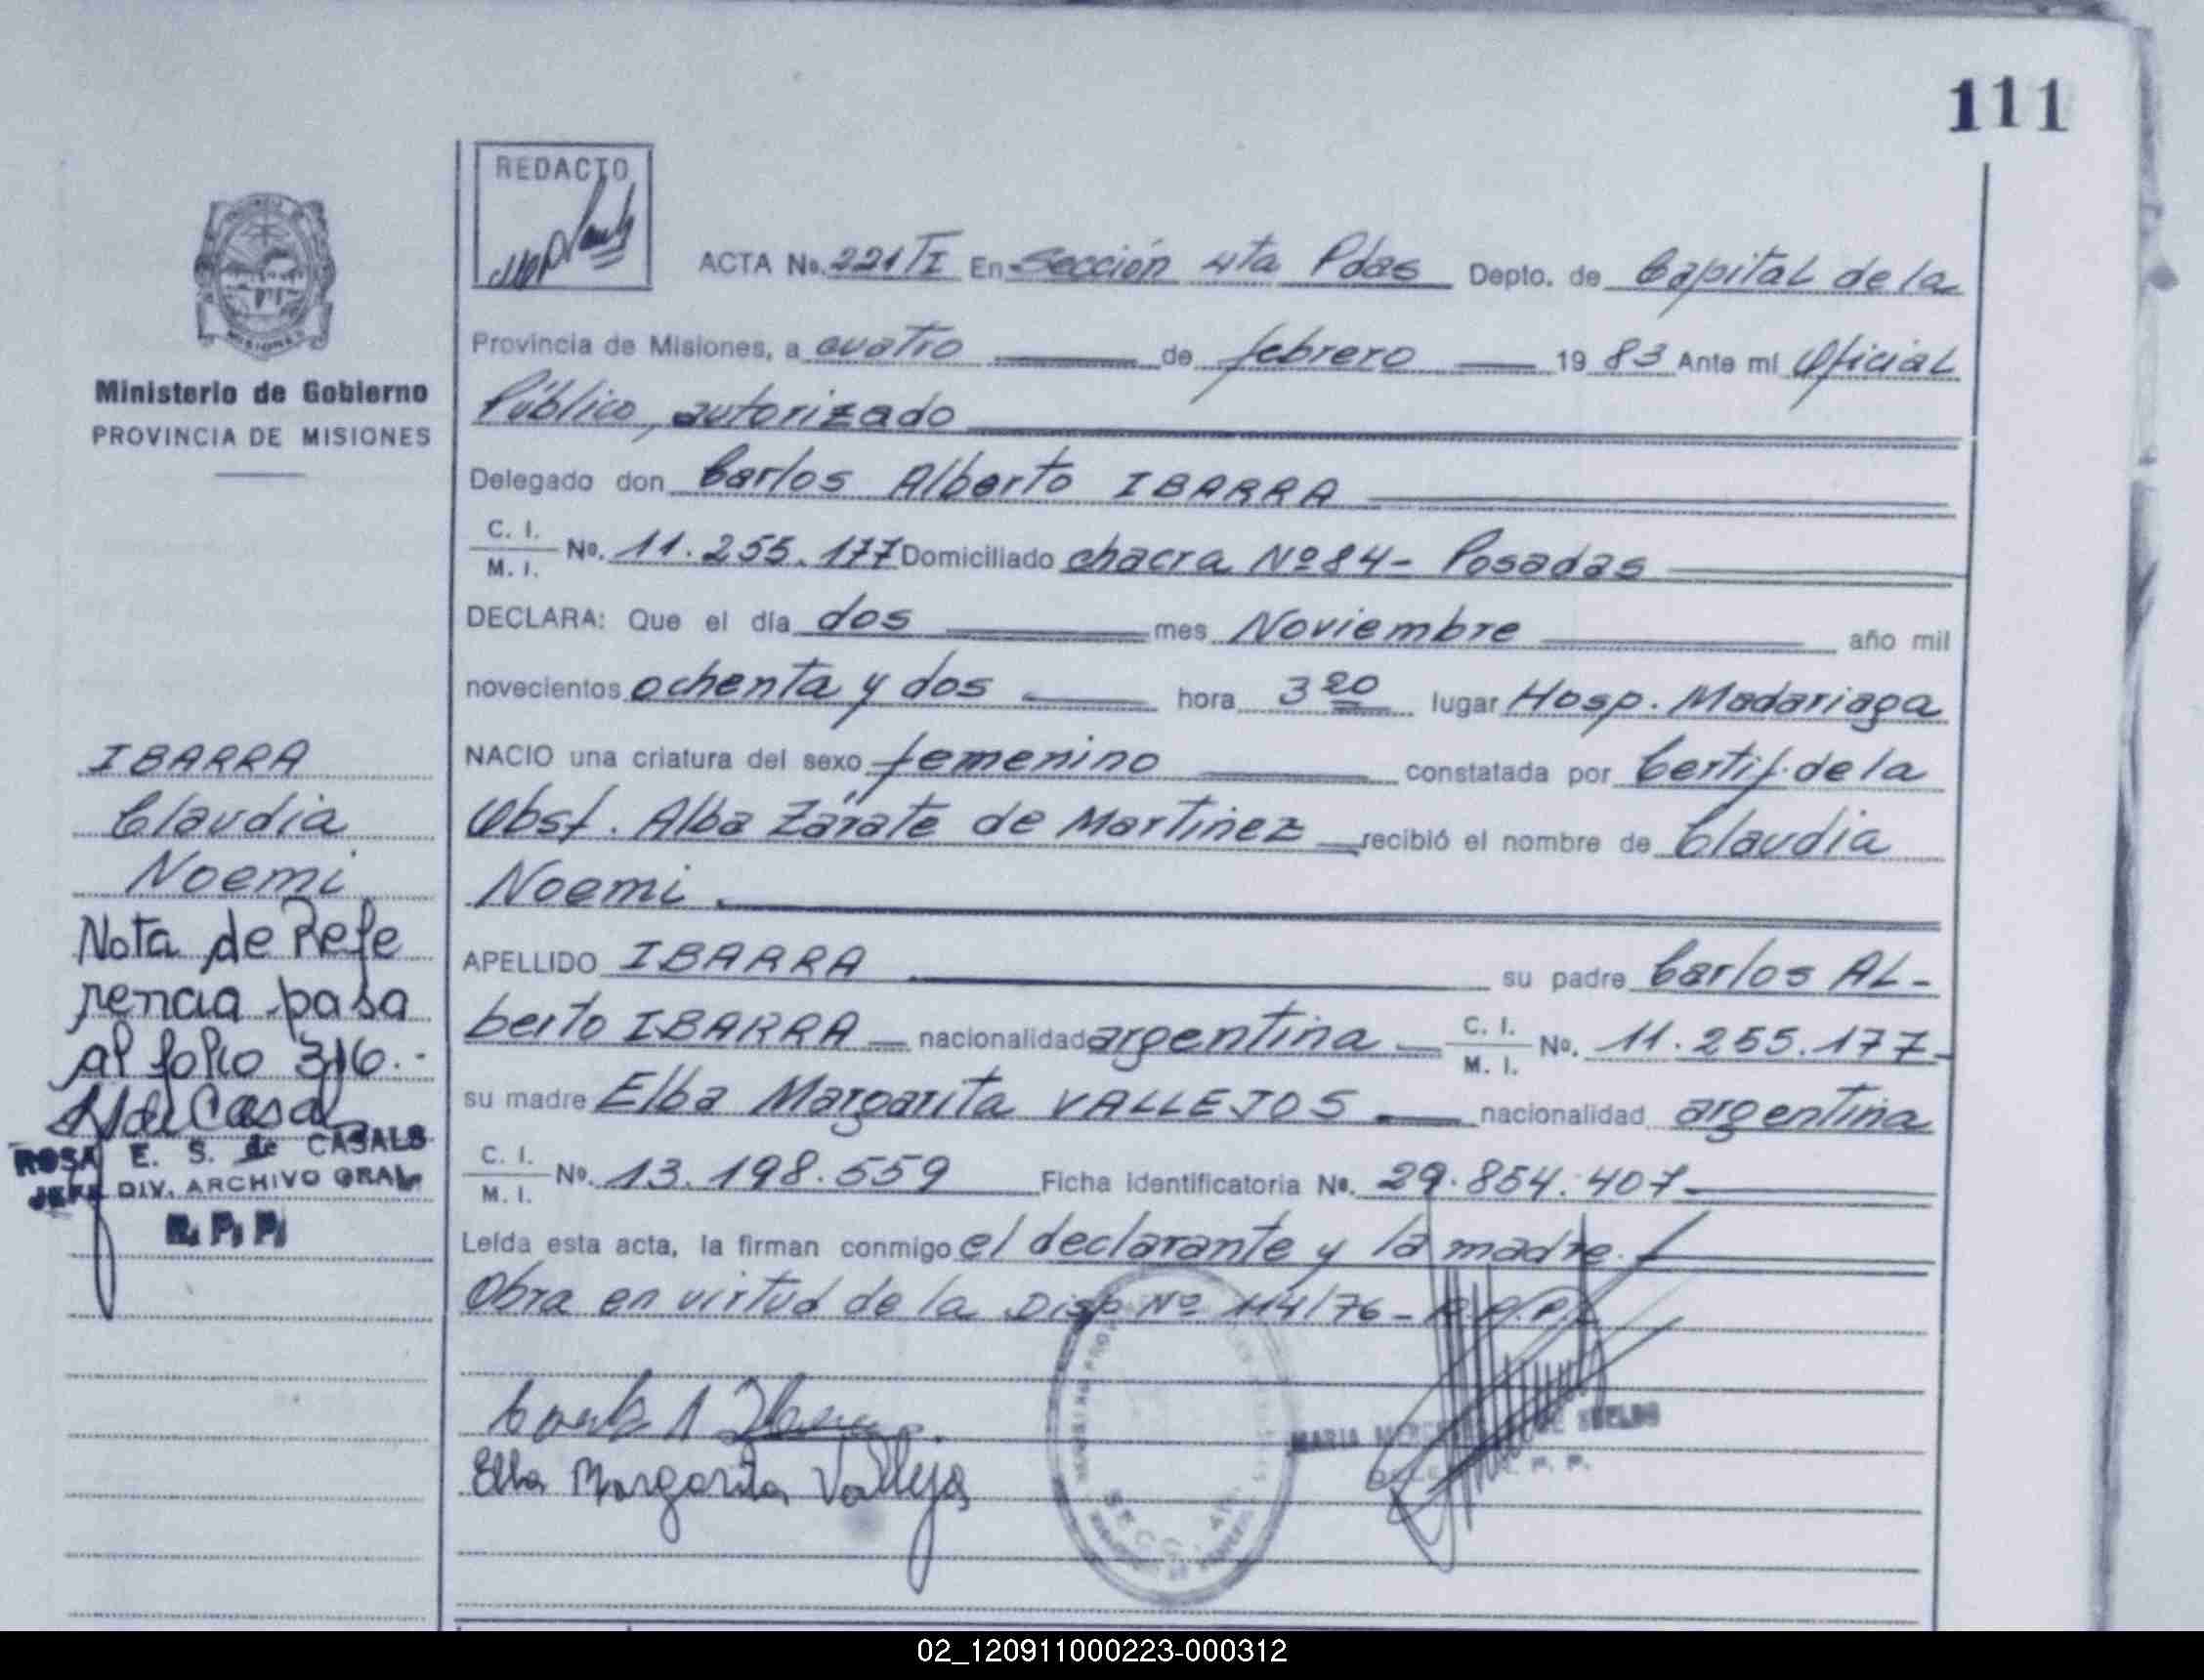 111
REDACTO
ACTA No. 221/I En Sección 4ta Pdas Depto. de Capital de la
Provincia de Misiones, a cuatro de febrero 1983 Ante mí Oficial
Público, autorizado
Delegado don Carlos Alberto IBARRA
C. I. M. I. No. 11.255.177 Domiciliado chacra Nº 84 - Posadas
DECLARA: Que el día dos mes Noviembre año mil
novecientos ochenta y dos hora 3 20 lugar Hosp. Madariaga
NACIO una criatura del sexo femenino constatada por Certif. de la
Obst. Alba Zárate de Martinez recibió el nombre de Claudia
Noemi.
APELLIDO IBARRA su padre Carlos AL-
berto IBARRA nacionalidad argentina C. I. M. I. No. 11.255.177
su madre Elba Margarita VALLEJOS nacionalidad argentina
C. I. M. I. No. 13.198.559 Ficha identificatoria No. 29.854.407
Leída esta acta, la firman conmigo el declarante y la madre.
Obra en virtud de la Disp Nº 114/76 - R.P.P.
Elba Margarita Vallejos
MARIA DE SUELDO
MISIONES
Ministerio de Gobierno
PROVINCIA DE MISIONES
IBARRA
Claudia
Noemi
Nota de Refe
rencia pasa
al folio 316.-
ROSA E. S. de CASALS
JEFE DIV. ARCHIVO GRAL
R. P. P.
02_120911000223-000312